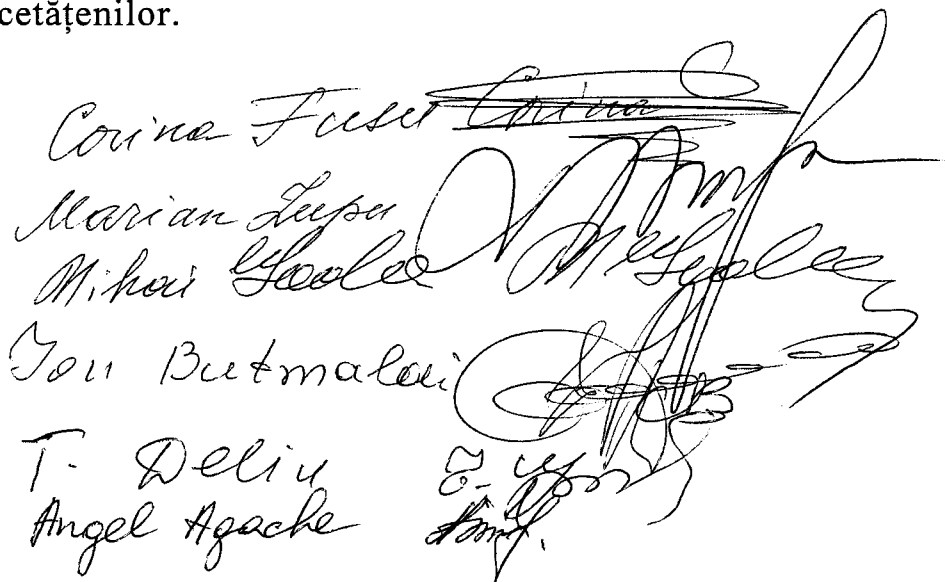 cetățenilor.
Corina Fusu Corina
Marian Lupu
Mihai Godea M Godea
Ion Butmalai
T. Deliu
Angel Agache